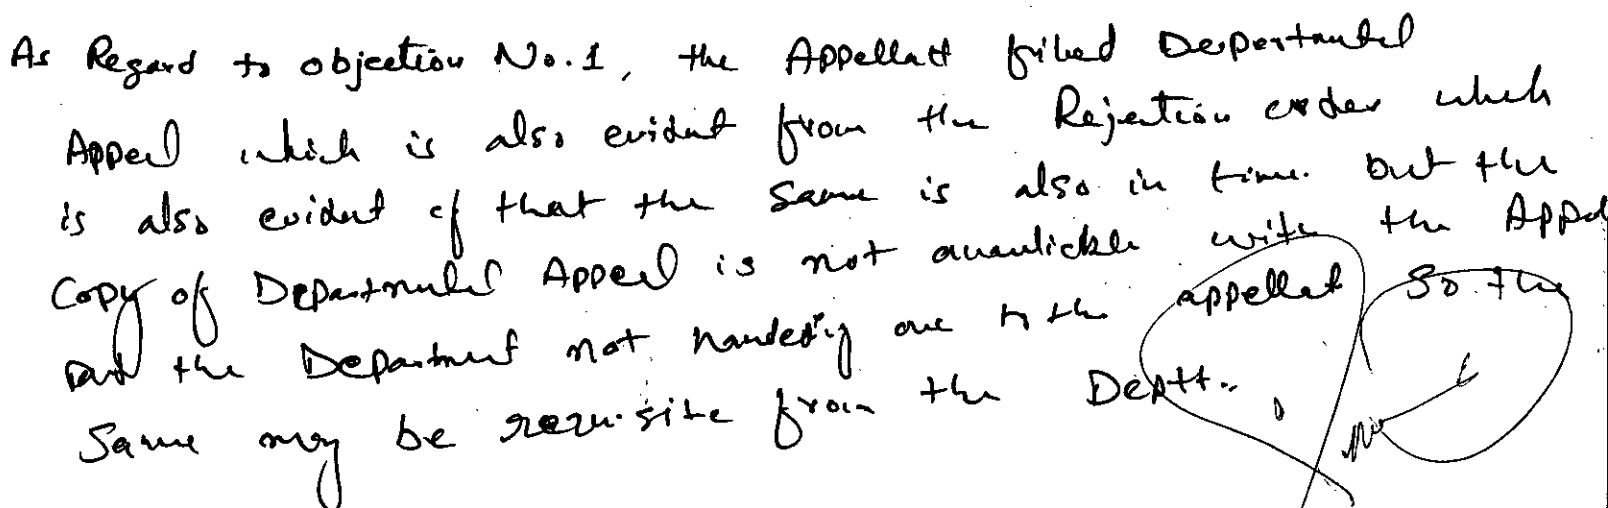 As Regard to objection No.1, the Appellant filed Departmental
Appeal which is also evident from the Rejection order which
is also evident of that the same is also in time. but the
Copy of Departmental Appeal is not available with the Appel
and the Department not handering one to the appellat so the
Same may be requisite from the Deptt..